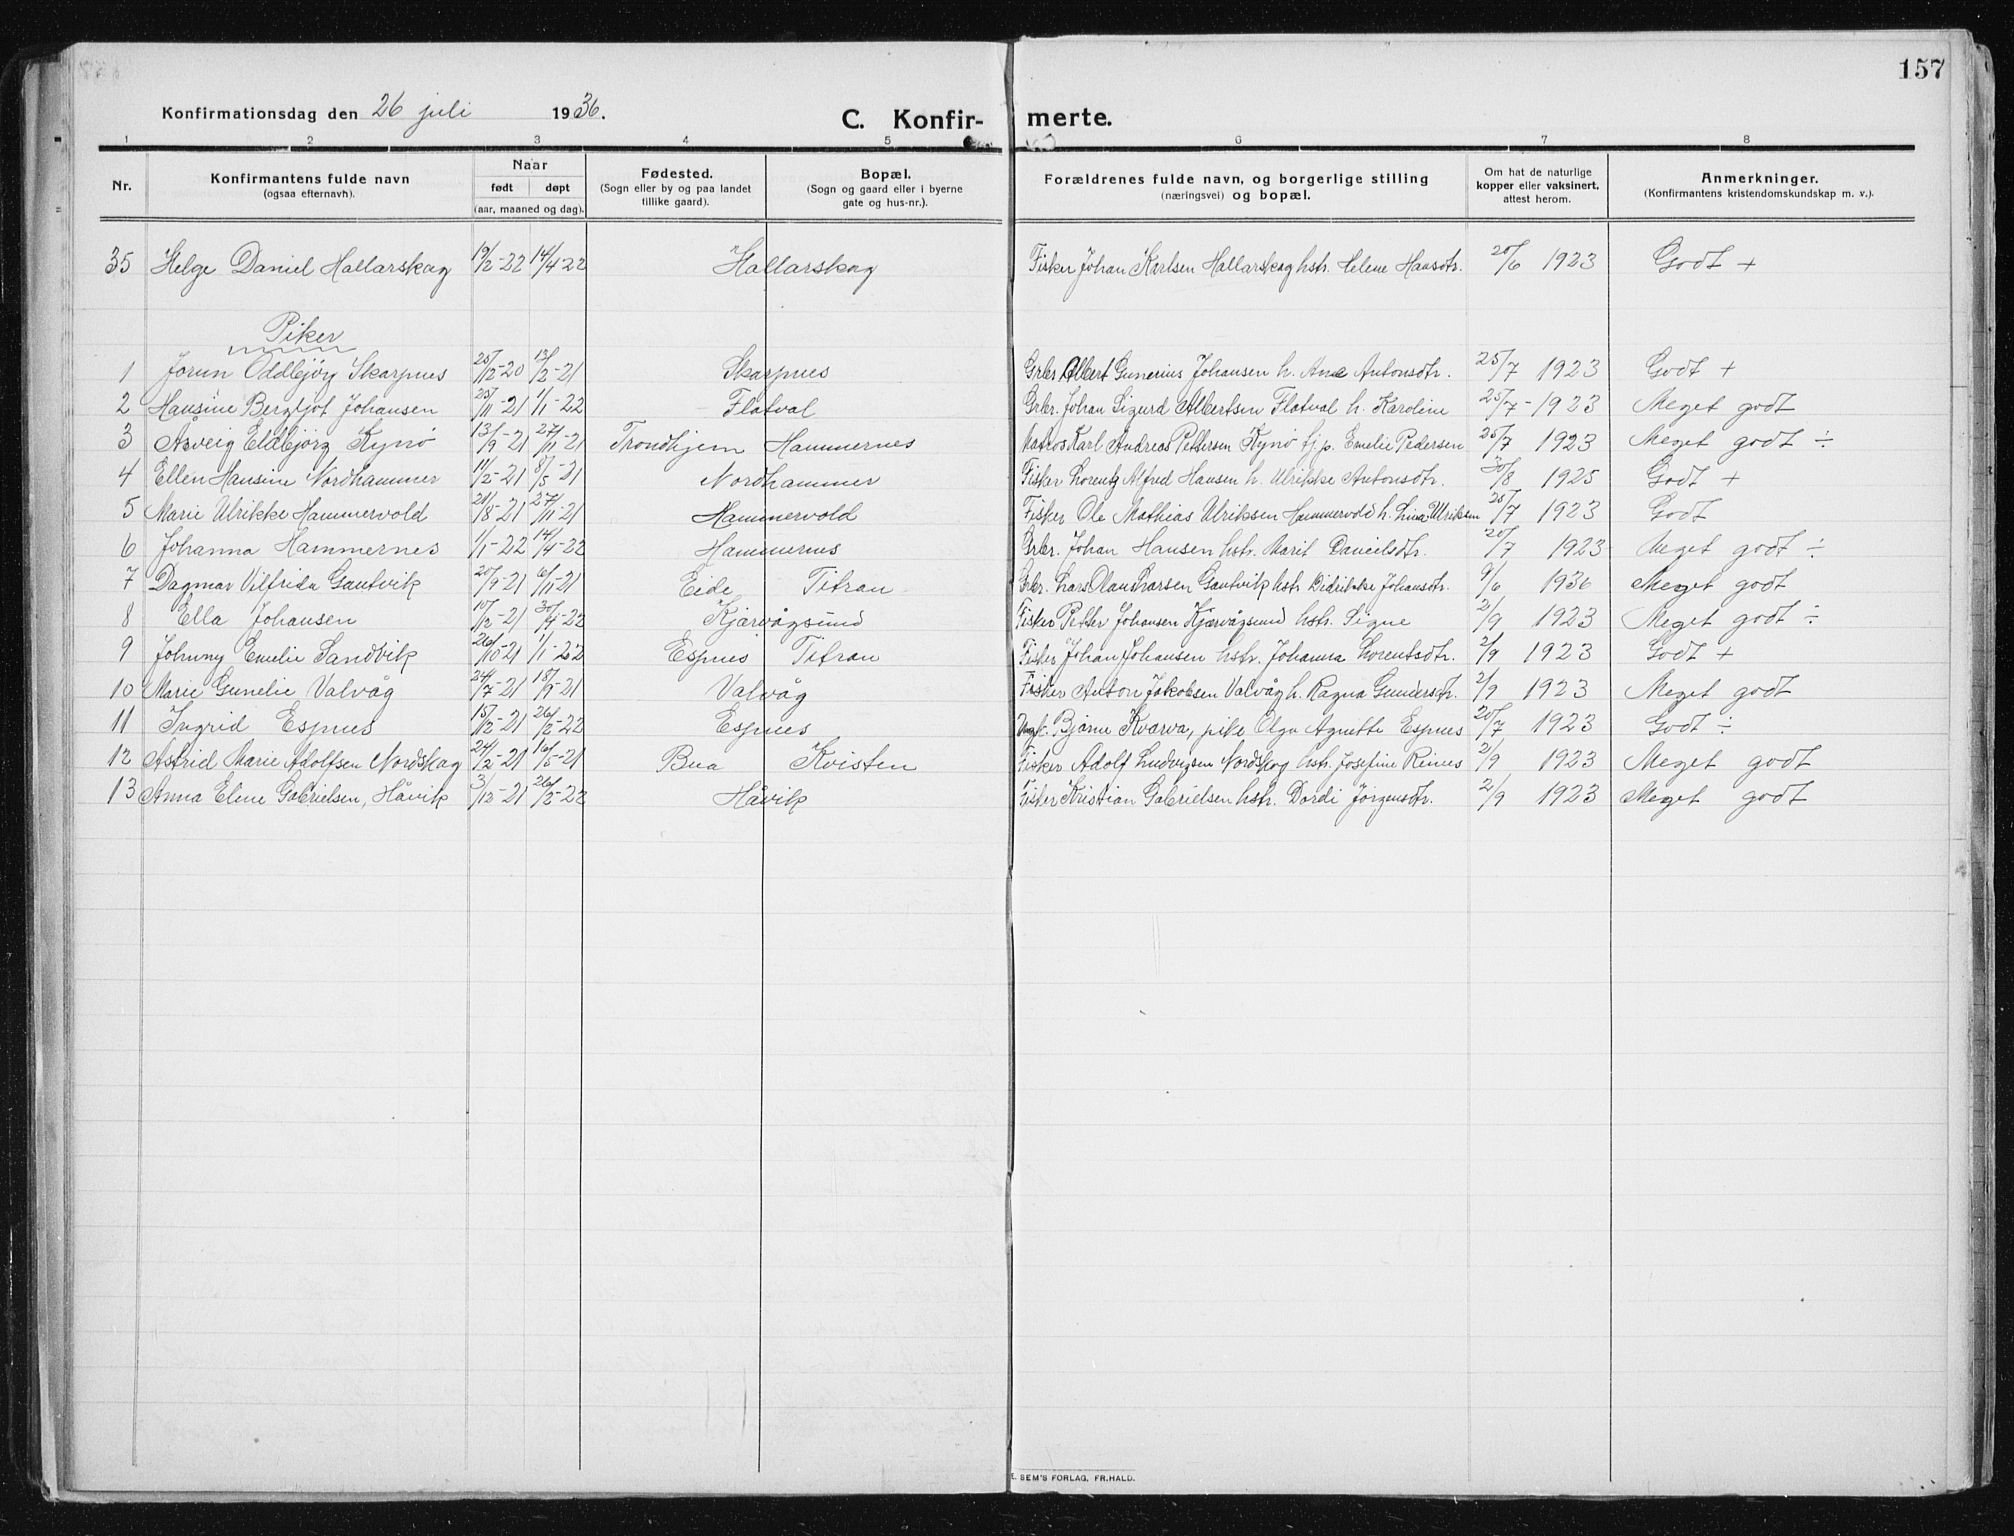 157
Konfirmationsdag den 26 juli 1936.
C. Konfir- merte.
1 2 3 4 5 6 7 8
Nr. Konfirmantens fulde navn (ogsaa efternavn). Naar født døpt (aar, maaned og dag). Fødested. (Sogn eller by og paa landet tillike gaard). Bopæl. (Sogn og gaard eller i byerne gate og hus-nr.). Forældrenes fulde navn, og borgerlige stilling (næringsvei) og bopæl. Om hat de naturlige kopper eller vaksinert, attest herom. Anmerkninger. (Konfirmantens kristendomskundskap m. v.).
35 Helge Daniel Hallarskag 19/2-22 14/4 22 Hallarskag Fisker Johan Karlsen Hallarskag hstr. Helene Hansdtr. 20/6 1923 Godt +
Piker
1 Jorun Oddbjørg Skarpnes 25/12-20 13/2-21 Skarpnes Grbr. Albert Gunerius Johansen h. Ane Antonsdtr. 25/7 1923 Godt +
2 Hansine Bergljot Johansen 25/11-21 1/1-22 Flatval Grbr. Johan Sigurd Albertsen Flatval h. Karoline 25/7-1923 Meget godt
3 Asveig Eldbjørg Kynø 13/9-21 27/12-21 Trondhjem Hammernes Karl Andreas Pettersen Kynø fj. p. Emelie Pedersen 25/7 1923 Meget godt ÷
4 Ellen Hansine Nordhammer 11/2-21 8/5-21 Nordhammer Fisker Lorentz Alfred Hansen h. Ulrikke Antonsdtr. 30/8 1925 Godt +
5 Marie Ulrikke Hammervold 21/8-21 27/11-21 Hammervold Fisker Ole Mathias Ulriksen Hammervold h. Lina Ulriksen 25/7 1923 Godt
6 Johanna Hammernes 1/1-22 14/4-22 Hammernes Grbr. Johan Hansen hstr. Marit Danielsdtr. 20/7 1923 Meget godt ÷
7 Dagmar Vilfrida Gautvik 20/9-21 6/11-21 Eide Titran Grbr. Lars Olaus Larsen Gautvik hstr. Didrikke Johansdtr. 9/6 1936 Meget godt
8 Ella Johansen 10/12-21 30/4-22 Kjærvågsund Fisker Petter Johansen Kjærvågsund hstr. Signe 2/9 1923 Meget godt ÷
9 Johnny Emelie Sandvik 26/10-21 1/1-22 Espnes Titran Fisker Johan Johansen hstr. Johanna Lorentsdtr. 2/9 1923 Godt +
10 Marie Gunelie Valvåg 24/7-21 18/9-21 Valvåg Fisker Anton Jakobsen Valvåg h. Ragna Gundersdtr. 2/9 1923 Meget godt
11 Ingrid Espnes 15/12-21 26/2-22 Espnes Ungk. Bjarne Kvarva, pike Olga Agnette Espnes 20/7 1923 Godt ÷
12 Astrid Marie Adolfsen Nordskag 24/2-21 16/5-21 Bua Kvisten Fisker Adolf Ludvigsen Nordskag hstr. Josefine Rines 2/9 1923 Meget godt
13 Anna Elene Gabrielsen, Håvik 3/12-21 26/2-22 Håvik Fisker Kristian Gabrielsen hstr. Dordi Jørgensdtr. 2/9 1923 Meget godt
E. SEM'S FORLAG, FR.HALD.